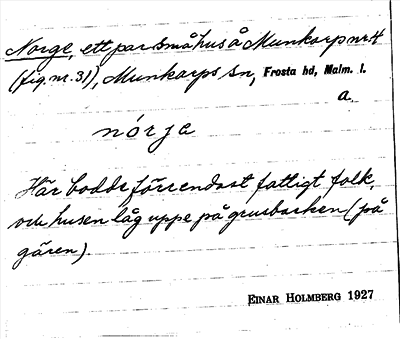 Norge, ett par småhus å Munkarp nr 4
(fig. nr. 31), Munkarps sn, Frosta hd, Malm. l.
a.
nórja
Här bodde förr endast fattigt folk,
och husen låg uppe på grusbacken (på
gären).
EINAR HOLMBERG 1927